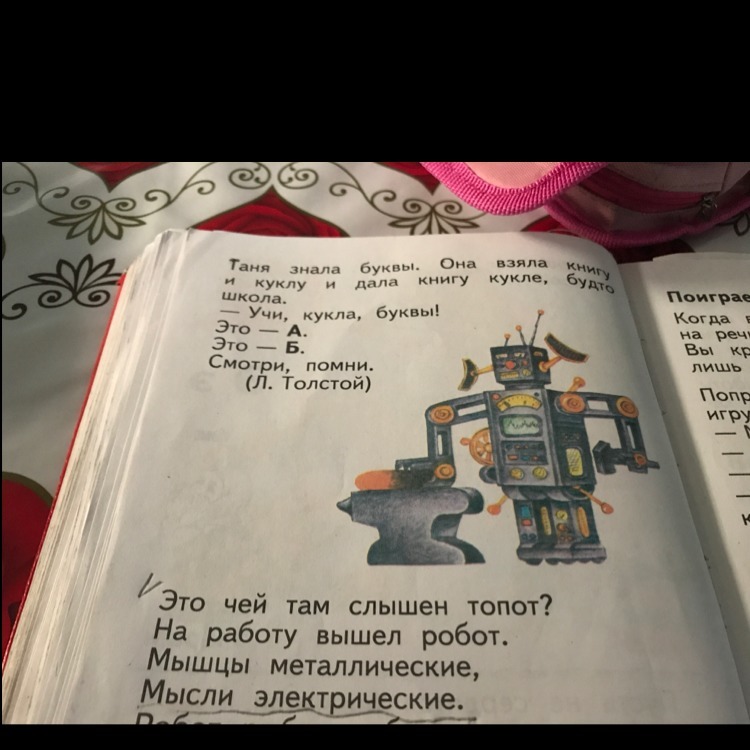 Таня знала буквы. Она взяла книгу
и куклу и дала книгу кукле, будто
школа.
— Учи, кукла, буквы!
Это — А.
Это — Б.
Смотри, помни.
(Л. Толстой)
Это чей там слышен топот?
На работу вышел робот.
Мышцы металлические,
Мысли электрические.
Когда
на
Вы
лишь